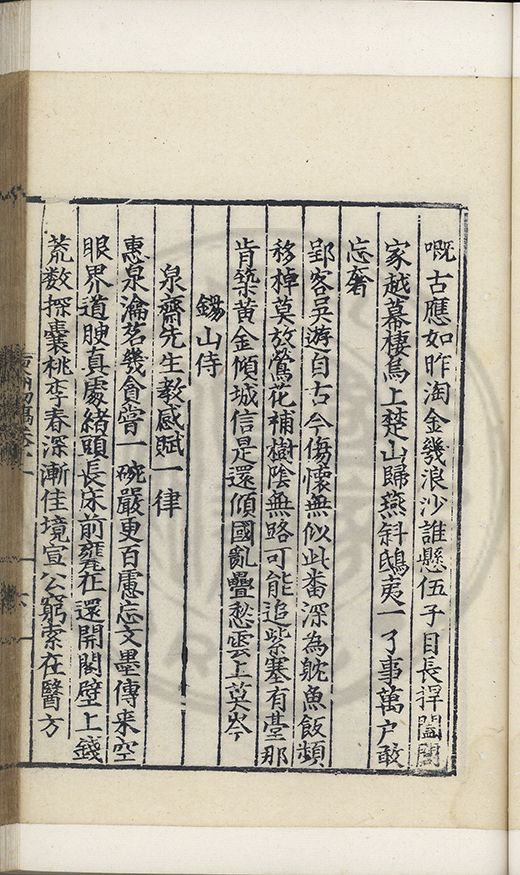 嘅古應如昨淘金幾浪沙誰懸伍子目長捍闔閭
家越幕棲烏上楚山歸燕斜鴟夷一了事萬户敢
忘奢
郢客吳遊自古今傷懷無似此番深為魷魚飯頻
移棹莫放鶯花補樹陰無路可能追紫塞有臺那
肯築黃金傾城信是還傾國亂疊愁雲上莫岑
錫山侍
泉齋先生教感賦一律
惠泉瀹茗幾貪嘗一碗嚴更百慮忘文墨傳来空
眼界道腴真處緒頭長床前甕在還開閣壁上錢
荒数探囊桃李春深漸佳境宣公窮索在醫方